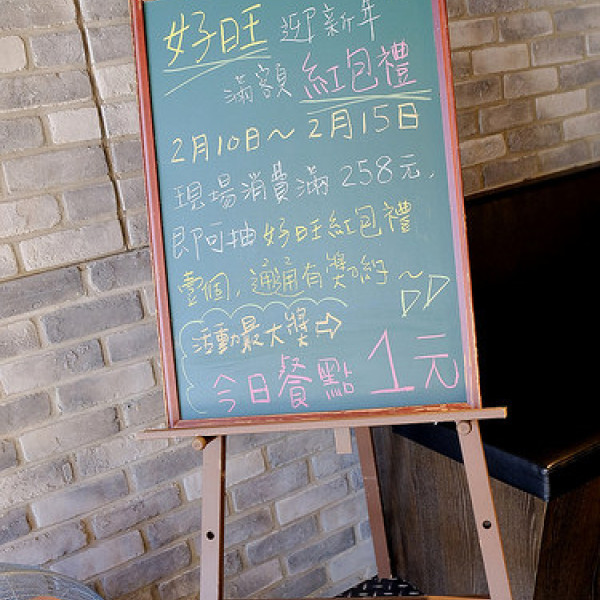 好旺 迎新年
滿額 紅包禮
2月10日～2月15日
現場消費滿 258元,
即可抽好旺紅包禮
壹個,通通有獎喲~
活動最大獎⇨
今日餐點 1元